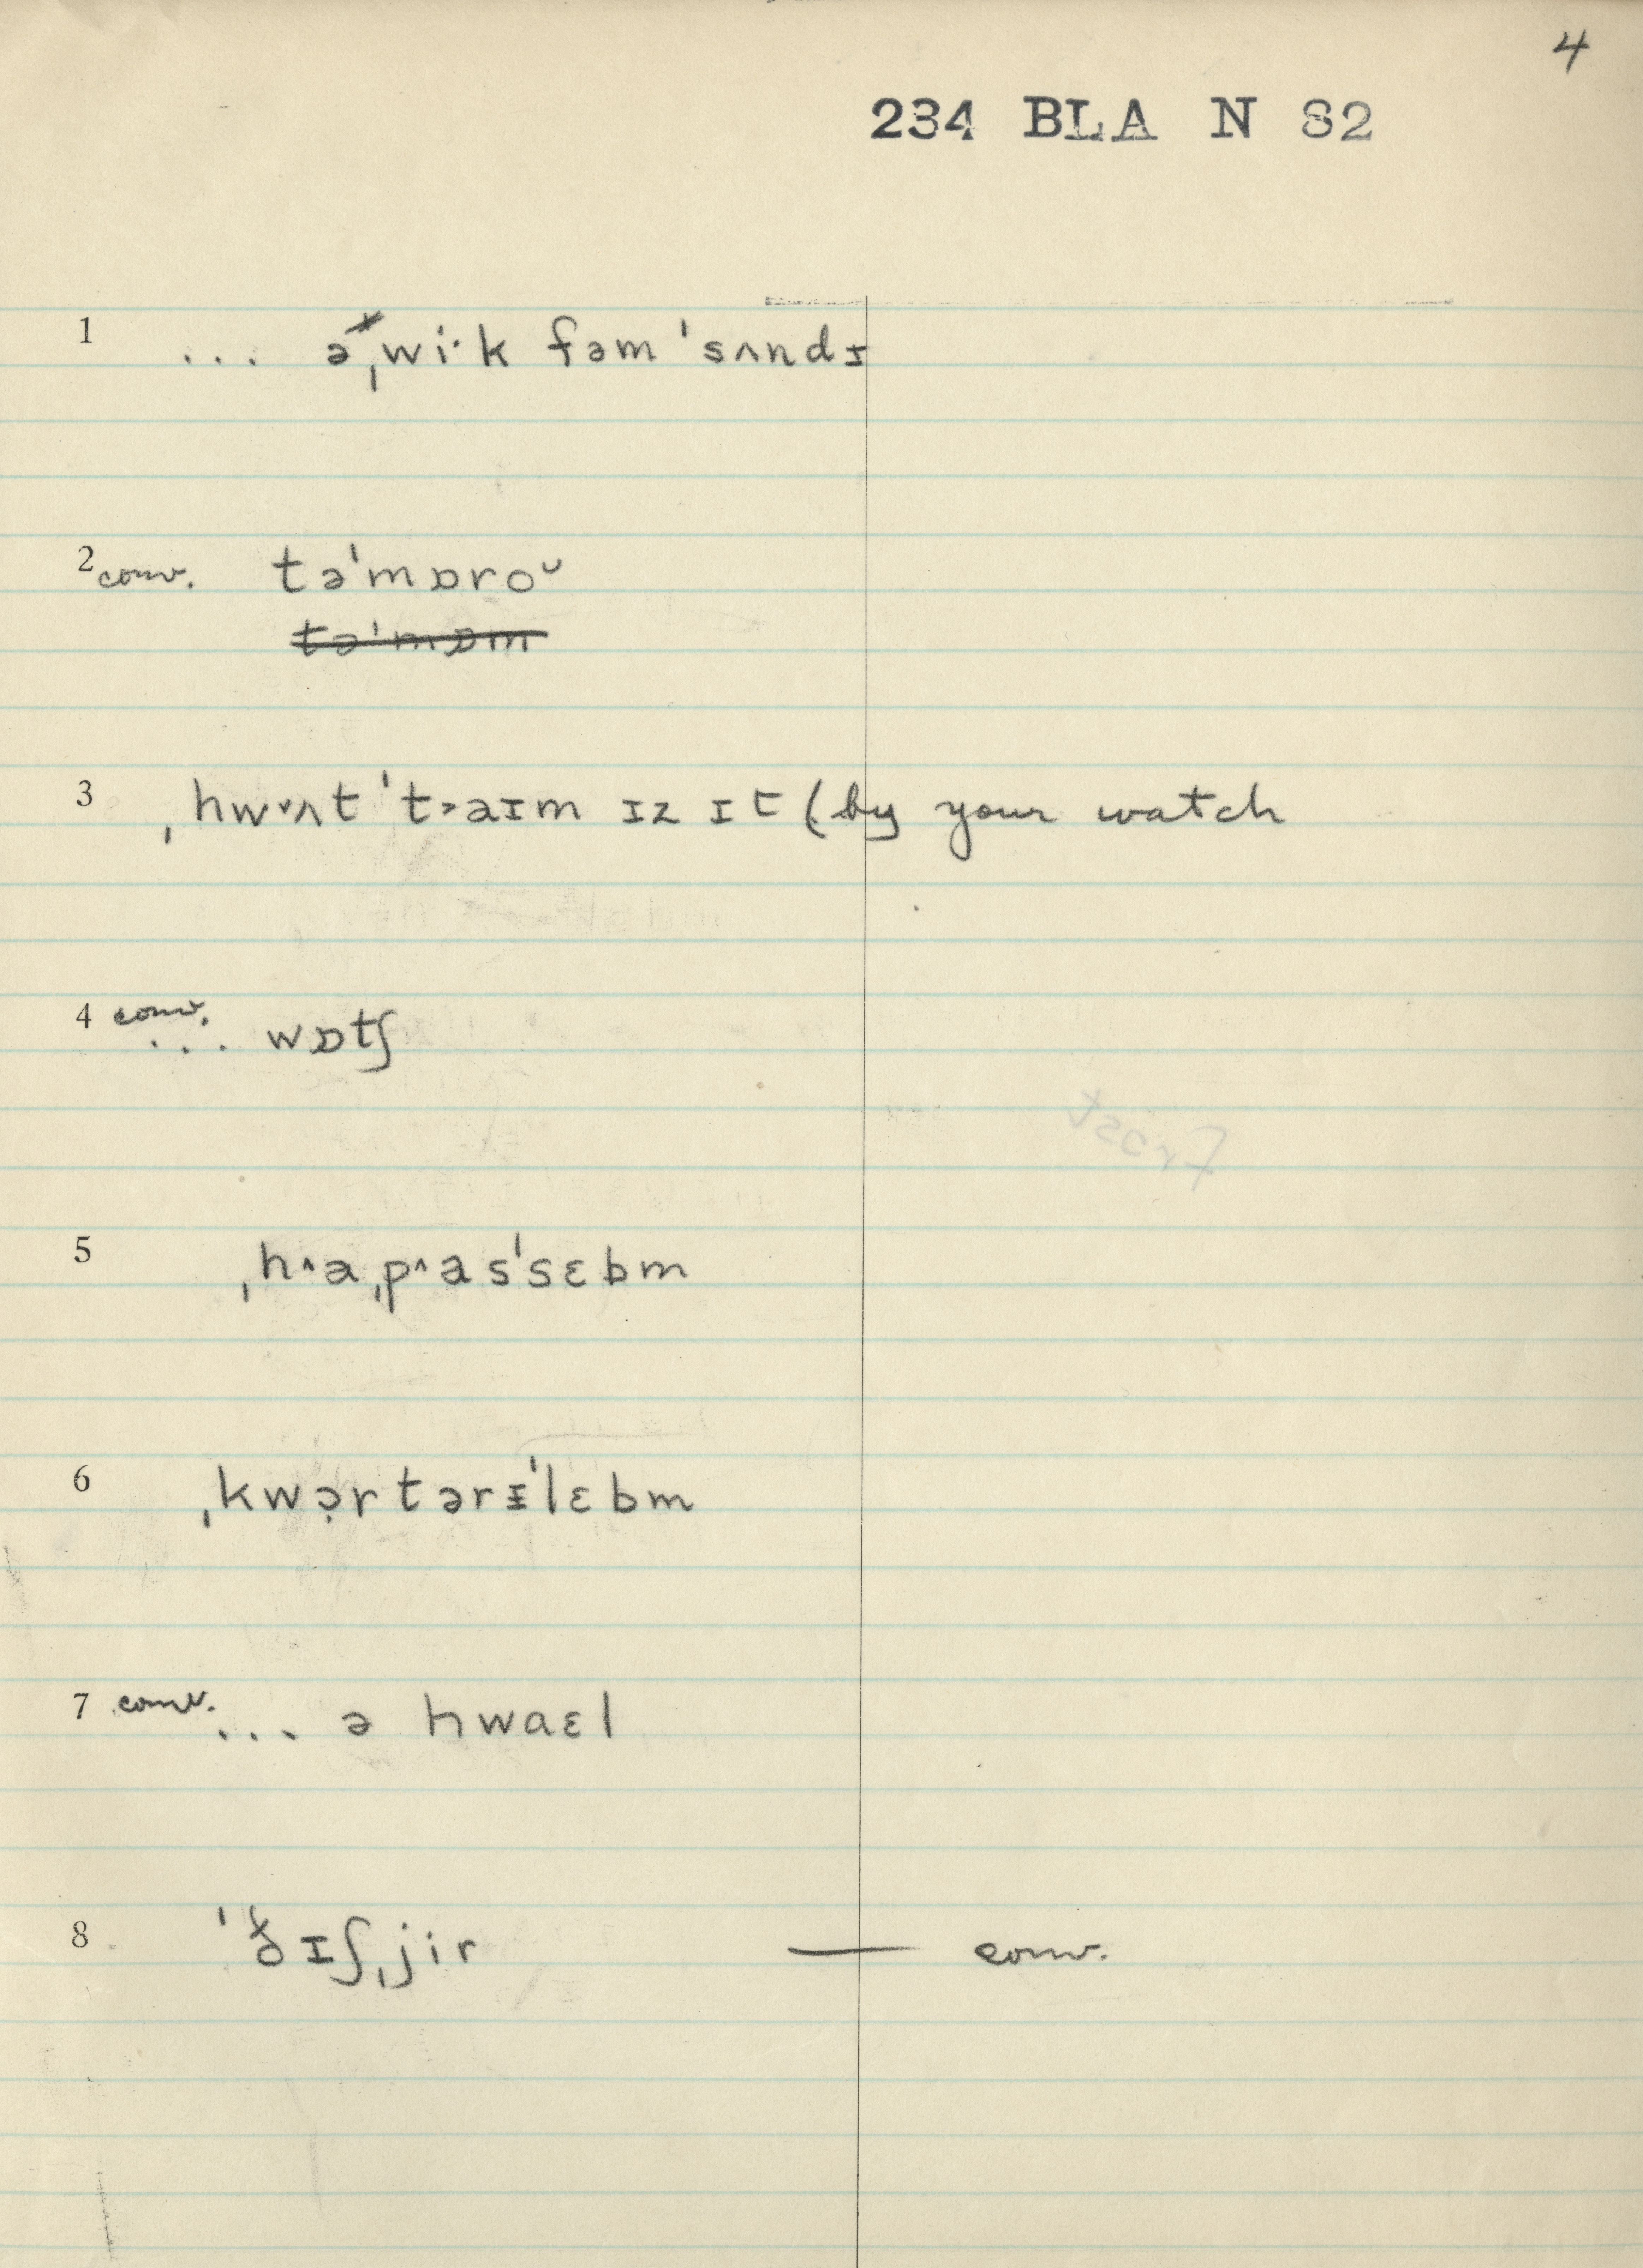 4
234 BLA N 82
1 ... əˌwi·k fəm ˈsʌndɪ
2 conv. təˈmɒroᴗ
təˈmɒm
3 ˌhw˅ʌt ˈt˃aɪm ɪz ɪt (by your watch
4 conv. ... wɒtʃ
5 ˌh˄aˌp˄asˈsɛbm
6 ˌkwə̣rtərɪˈlɛbm
7 conv. ... ə hwaɛl
8 ˈðɪʃˌjir — conv.